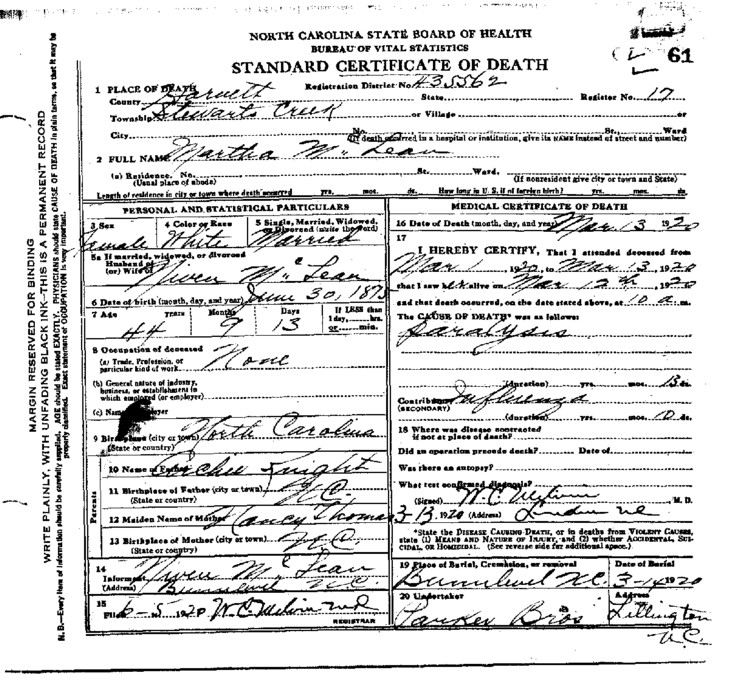 NORTH CAROLINA STATE BOARD OF HEALTH
BUREAU OF VITAL STATISTICS
STANDARD CERTIFICATE OF DEATH
61
1 PLACE OF DEATH Registration District No. 435562
County Harnett State Register No. 17
Township Stewarts Creek or Village or
City No. St., Ward
(If death occurred in a hospital or institution, give its NAME instead of street and number)
2 FULL NAME Martha Mc Lean
(a) Residence. No. St. Ward.
(Usual place of abode) (If nonresident give city or town and State)
Length of residence in city or town where death occurred yrs. mos. ds. How long in U. S. if of foreign birth? yrs. mos. ds.
PERSONAL AND STATISTICAL PARTICULARS
3 Sex 4 Color or Race 5 Single, Married, Widowed, or Divorced (write the word)
Female White Married
5a If married, widowed, or divorced
Husband of
(or) Wife of Mc Lean
6 Date of birth (month, day, and year) June 30, 1875
7 Age Years Months Days If LESS than
1 day, hrs.
or min.
44 9 13
8 Occupation of deceased
(a) Trade, Profession, or
particular kind of work None
(b) General nature of industry,
business, or establishment in
which employed (or employer)
(c) Name of employer
9 Birthplace (city or town) North Carolina
(State or country)
Parents
10 Name of Father Archie Knight
11 Birthplace of Father (city or town) N.C.
(State or country)
12 Maiden Name of Mother Nancy Thomas
13 Birthplace of Mother (city or town) N.C.
(State or country)
14
Informant Mc Lean
(Address) Bunnlevel N.C.
15
Filed 6-5 1920 W.C. Melvin MD
REGISTRAR
MEDICAL CERTIFICATE OF DEATH
16 Date of Death (month, day, and year) Mar. 13 1920
17
I HEREBY CERTIFY, That I attended deceased from
Mar 1, 1920, to Mar 13, 1920
that I saw her alive on Mar 12th, 1920
and that death occurred, on the date stated above, at 10 a.m.
The CAUSE OF DEATH* was as follows:
Paralysis
(duration) yrs. mos. 13 ds.
Contributory Influenza
(SECONDARY)
(duration) yrs. mos. 10 ds.
18 Where was disease contracted
if not at place of death?
Did an operation precede death? Date of
Was there an autopsy?
What test confirmed diagnosis?
(Signed) W.C. Melvin, M. D.
3-13, 1920 (Address) Linden NC
*State the DISEASE CAUSING DEATH, or in deaths from VIOLENT CAUSES,
state (1) MEANS AND NATURE OF INJURY, and (2) whether ACCIDENTAL, SUI-
CIDAL, OR HOMICIDAL. (See reverse side for additional space.)
19 Place of Burial, Cremation, or removal Date of Burial
Bunnlevel N.C. 3-14 1920
20 Undertaker Address
Parker Bros Lillington
N.C.
MARGIN RESERVED FOR BINDING
WRITE PLAINLY, WITH UNFADING BLACK INK—THIS IS A PERMANENT RECORD
N. B.—Every item of information should be carefully supplied. AGE should be stated EXACTLY. PHYSICIANS should state CAUSE OF DEATH in plain terms, so that it may be
properly classified. Exact statement of OCCUPATION is very important.